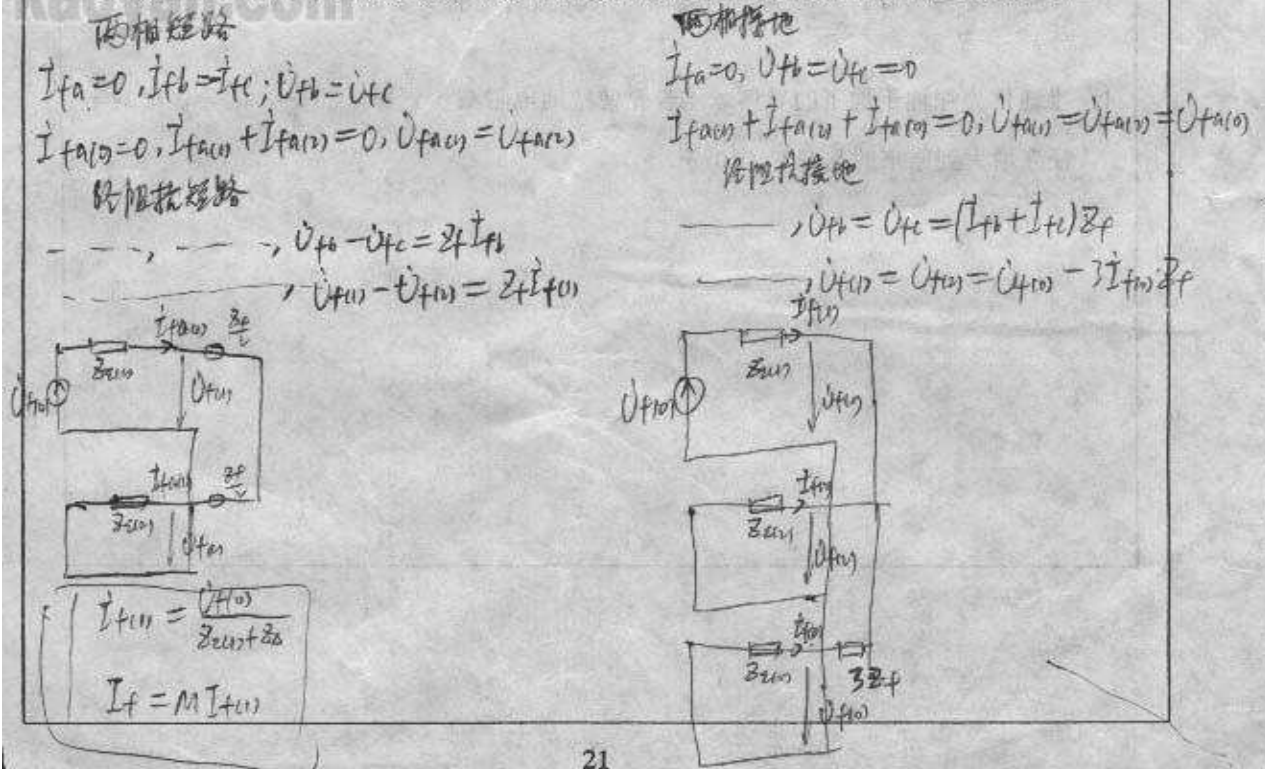 kaoyan.com
两相短路
İfa=0, İfb=İfc; U̇fb=U̇fc
İfa(0)=0, İfa(1)+İfa(2)=0, U̇fa(1)=U̇fa(2)
经阻抗短路
— — —, — — —, U̇fb-U̇fc=ZfİFb
, U̇f(1)-U̇f(2)=Zfİf(1)
İfa(1) Zf/2
ZΣ(1)
U̇f(0) U̇f(1)
İf(2) Zf/2
ZΣ(2)
U̇f(2)
İf(1)=U̇f(0)/(ZΣ(1)+ZΔ)
If=MIf(1)
两相接地
İfa=0, U̇fb=U̇fc=0
İfa(1)+İfa(2)+İfa(0)=0, U̇fa(1)=U̇fa(2)=U̇fa(0)
经阻抗接地
———, U̇fb=U̇fc=(İfb+İfc)Zf
———, U̇f(1)=U̇f(2)=U̇f(0)-3İf(0)Zf
İf(1)
ZΣ(1)
U̇f(0) U̇f(1)
İf(2)
ZΣ(2)
U̇f(2)
İf(0)
ZΣ(0) 3Zf
U̇f(0)
21